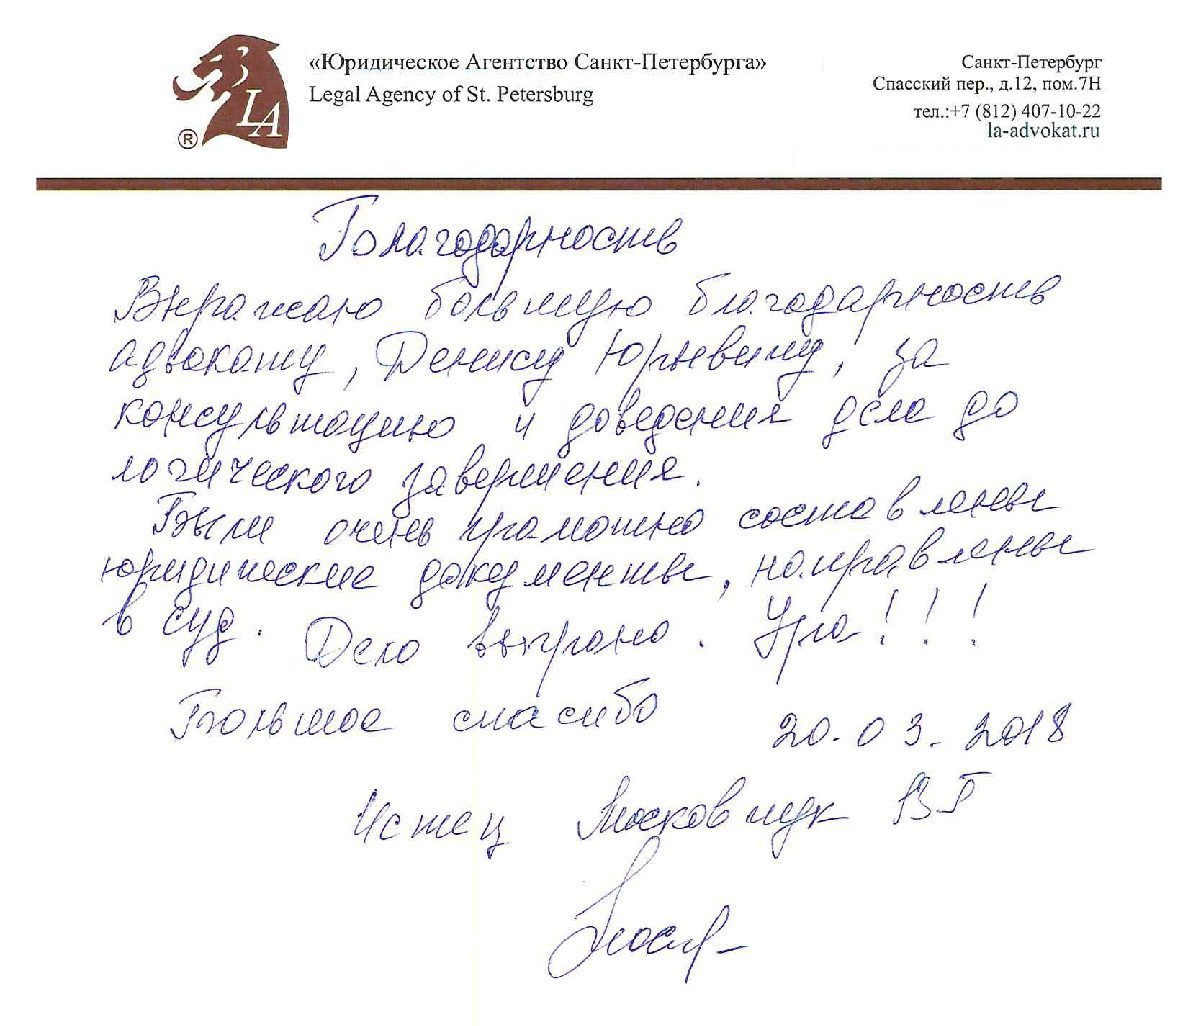 «Юридическое Агентство Санкт-Петербурга»
Legal Agency of St. Petersburg
Санкт-Петербург
Спасский пер., д.12, пом.7Н
тел.:+7 (812) 407-10-22
la-advokat.ru
LA
®
Благодарность
Выражаю большую благодарность
адвокату, Денису Юрьевичу, за
консультацию и доведения дела до
логического завершения.
Были очень грамотно составлены
юридические документы, направлены
в суд. Дело выграно. Ура!!!
Большое спасибо
20.03.2018
Истец Московчук ВГ